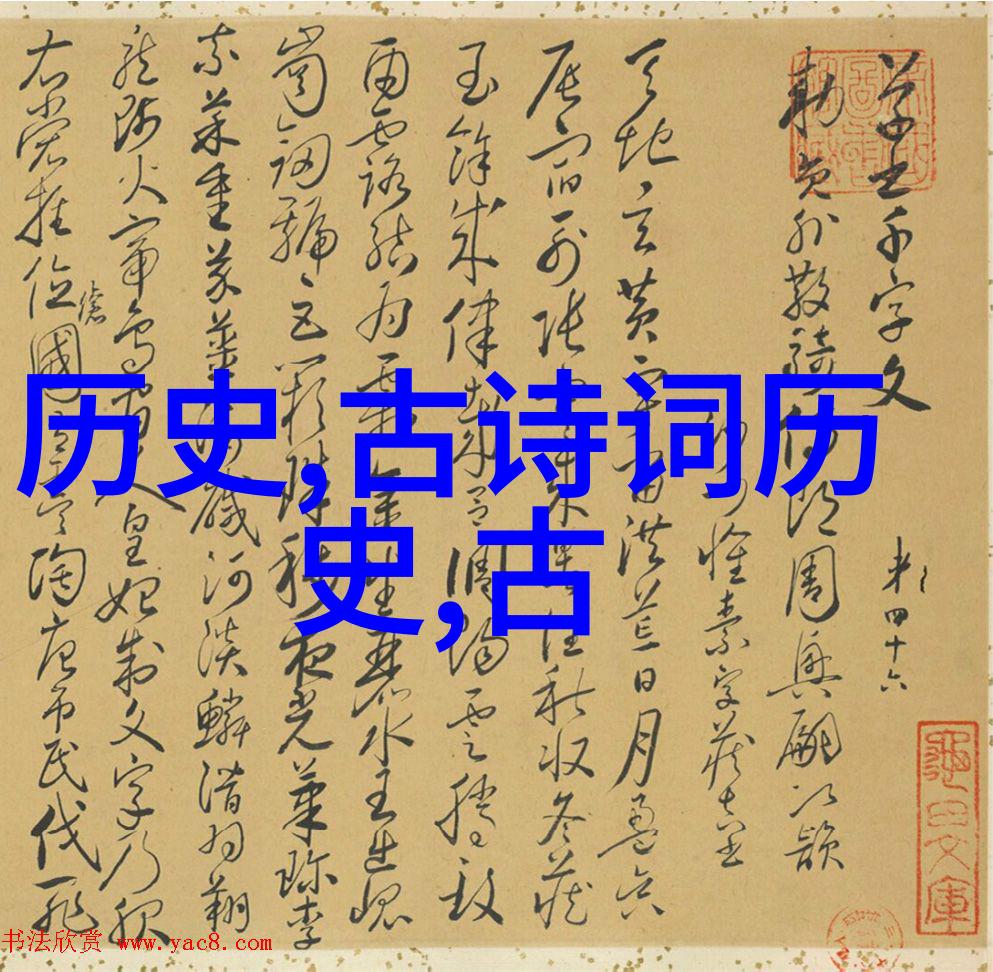 草書千字文 第四十六
敕員外散騎侍郎周興嗣次韻
懷素字藏真
天地玄黃宇宙洪荒日月盈
辰宿列張寒來暑往秋收冬藏
餘成律調陽雲騰致
雨露結為霜金生麗水玉出崐
崗劍號巨闕珠稱夜光菓珍李
柰菜重芥薑海鹹河淡鱗潛羽翔
龍師火帝鳥官人皇始制文字乃服
衣裳推位國虞陶唐弔民伐罪
历史,古诗词历
史,古
书法欣赏 www.yac8.com